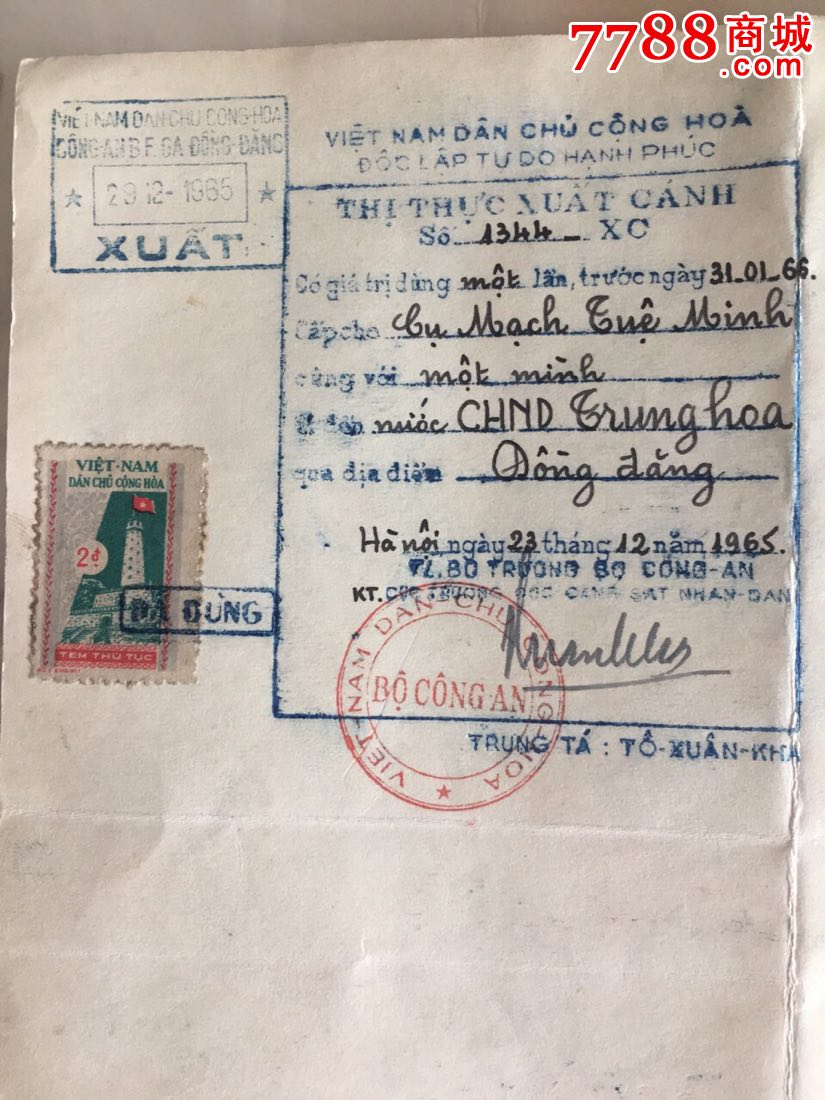 7788商城
.com
VIỆT-NAM DÂN CHỦ CỘNG-HOÀ
CÔNG-AN B.F. GA ĐỒNG-ĐĂNG
★ 29 12- 1965 ★
XUẤT
VIỆT NAM DÂN CHỦ CỘNG HOÀ
ĐỘC LẬP TỰ DO HẠNH PHÚC
THỊ THỰC XUẤT CẢNH
Số 1344 - XC
Có giá trị dùng một lần, trước ngày 31-01-66.
Cấp cho Cụ Mạch Tuệ Minh
cùng với một mình
đến nước CHND Trung hoa
qua địa điểm Đồng đăng
Hà nội ngày 23 tháng 12 năm 1965.
TL. BỘ TRƯỞNG BỘ CÔNG-AN
KT. CỤC TRƯỞNG CỤC CẢNH SÁT NHÂN-DÂN
VIỆT-NAM DÂN-CHỦ CỘNG-HOA ★
BỘ CÔNG AN
TRUNG TÁ : TÔ-XUÂN-KHA
VIỆT-NAM
DÂN CHỦ CỘNG HÒA
2đ
ĐÃ DÙNG
TEM THỦ TỤC